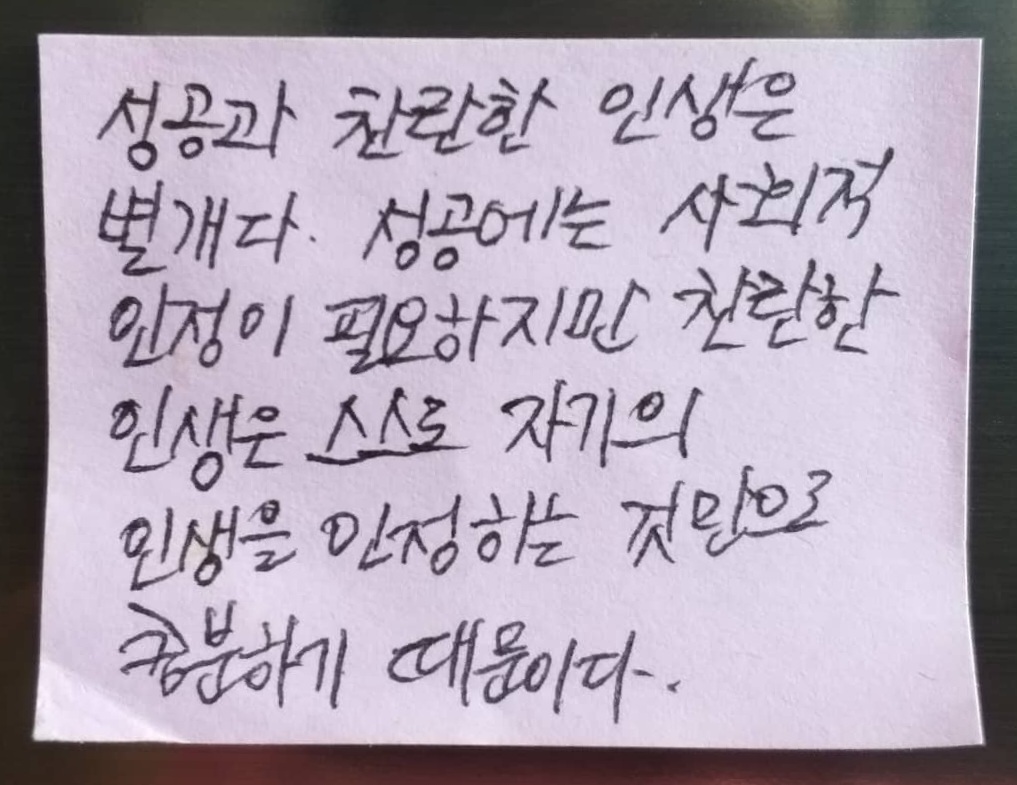 성공과 찬란한 인생은
별개다. 성공에는 사회적
인정이 필요하지만 찬란한
인생은 스스로 자기의
인생을 인정하는 것만으로
충분하기 때문이다.